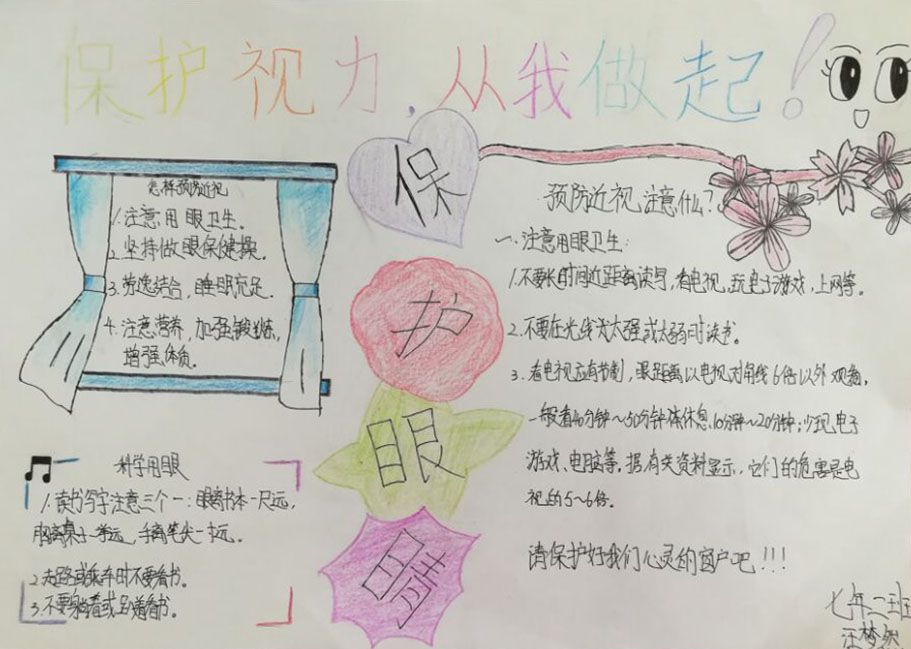 保护视力,从我做起!
怎样预防近视
1.注意用眼卫生。
2.坚持做眼保健操。
3.劳逸结合,睡眠充足。
4.注意营养,加强锻炼,
增强体质。
科学用眼
1.读书写字注意三个一:眼离书本一尺远,
胸离桌子一拳远,手离笔尖一寸远。
2.走路或乘车时不要看书。
3.不要躺着或趴着看书。
保
护
眼
睛
预防近视注意什么?
一.注意用眼卫生:
1.不要长时间近距离读写,看电视,玩电子游戏,上网等。
2.不要在光线太强或太弱时读书。
3.看电视应有节制,眼距离以电视对角线6倍以外观看。
一般看40分钟~50分钟休息10分钟~20分钟;少玩电子
游戏、电脑等。据有关资料显示,它们的危害是电
视的5~6倍。
请保护好我们心灵的窗户吧!!!
七年二班
汪梦